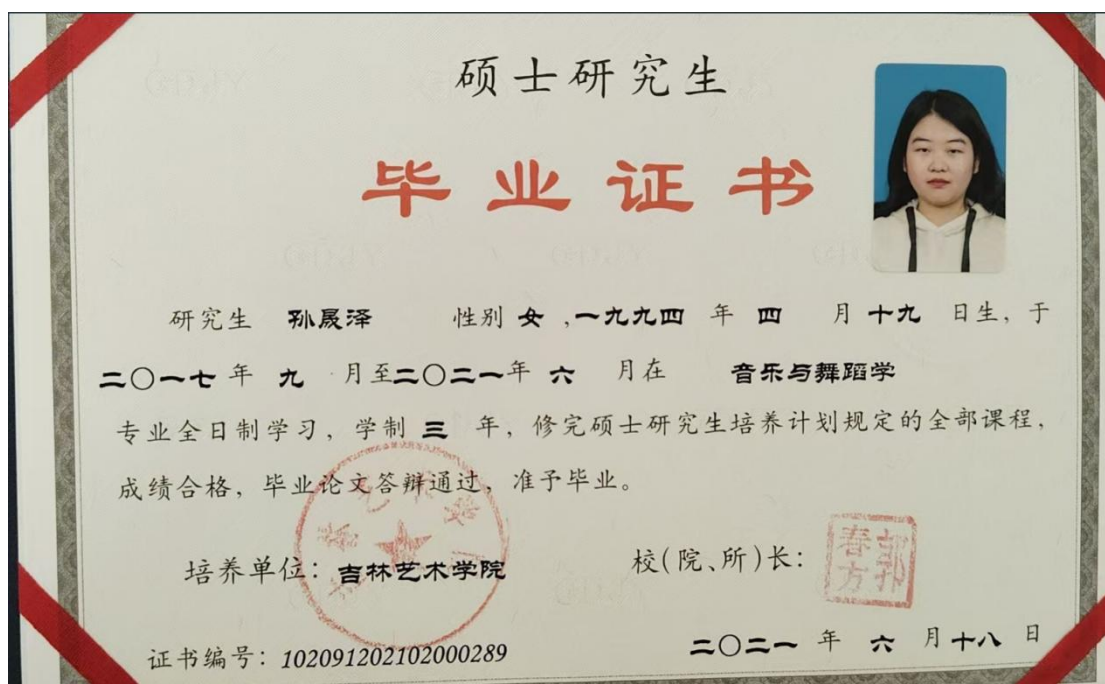 硕士研究生
毕业证书
研究生 孙晟泽 性别 女 ,一九九四 年 四 月 十九 日生, 于
二〇一七 年 九 月至二〇二一年 六 月在 音乐与舞蹈学
专业全日制学习, 学制 三 年, 修完硕士研究生培养计划规定的全部课程,
成绩合格, 毕业论文答辩通过, 准予毕业。
培养单位: 吉林艺术学院
校(院、所)长:
郭春方
证书编号: 102091202102000289
二〇二一 年 六 月 十八 日